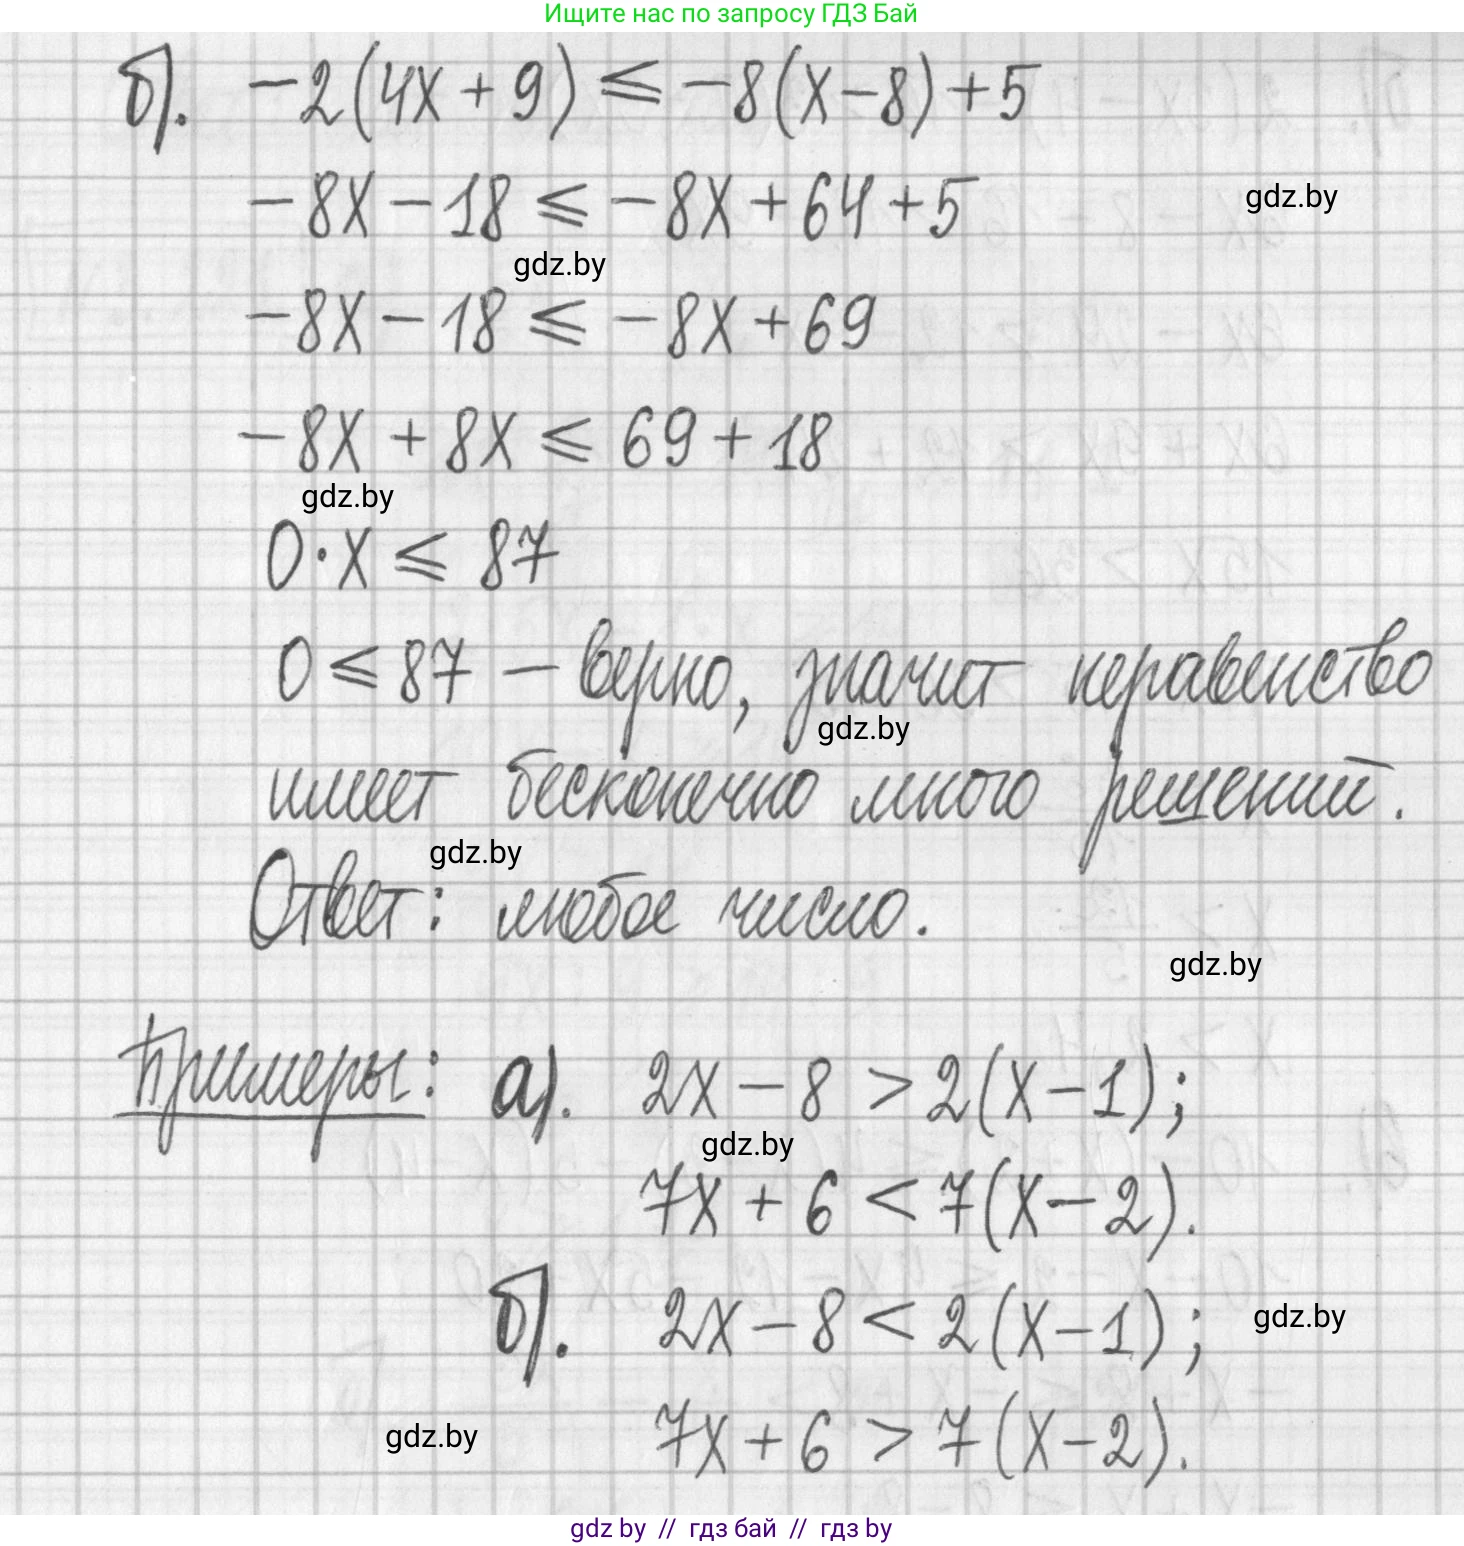 Ищите нас по запросу ГДЗ Бай
б). -2(4x+9) ⩽ -8(x-8)+5
-8x-18 ⩽ -8x+64+5
gdz.by
gdz.by
-8x-18 ⩽ -8x+69
-8x+8x ⩽ 69+18
gdz.by
0·x ⩽ 87
0 ⩽ 87 - верно, значит неравенство
gdz.by
имеет бесконечно много решений.
gdz.by
Ответ: любое число.
gdz.by
Примеры: а). 2x-8 > 2(x-1);
gdz.by
7x+6 < 7(x-2).
б). 2x-8 < 2(x-1);
gdz.by
7x+6 > 7(x-2).
gdz.by
gdz by // гдз бай // гдз by